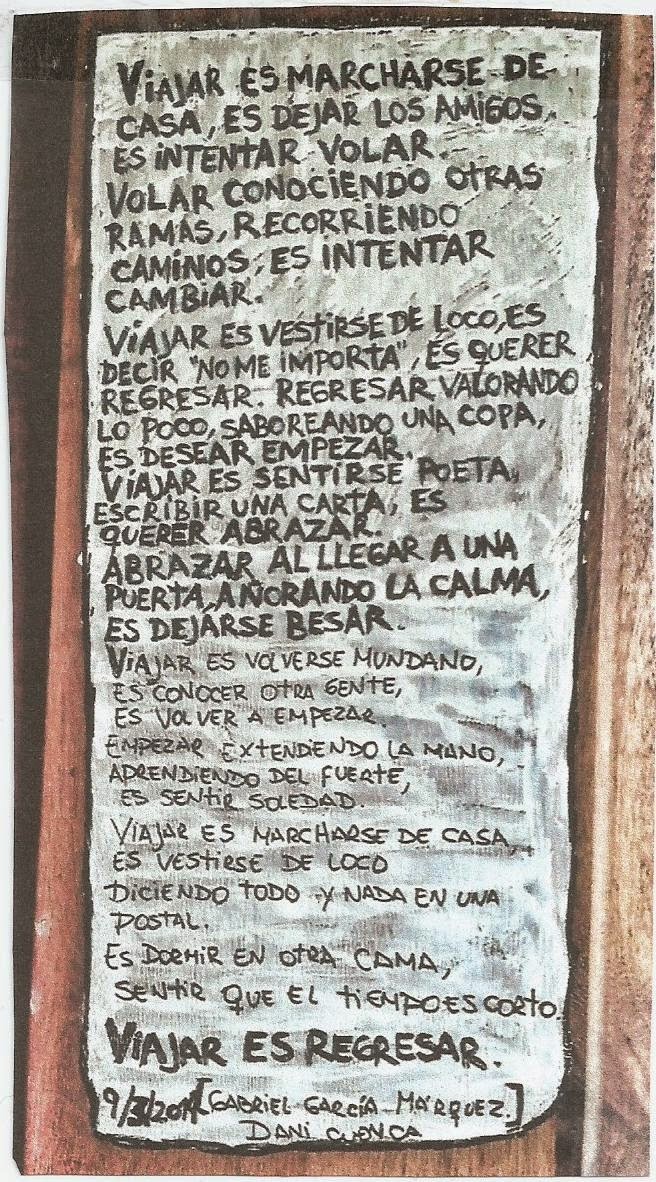 VIAJAR ES MARCHARSE DE
CASA, ES DEJAR LOS AMIGOS,
ES INTENTAR VOLAR.
VOLAR CONOCIENDO OTRAS
RAMAS, RECORRIENDO
CAMINOS, ES INTENTAR
CAMBIAR.
VIAJAR ES VESTIRSE DE LOCO, ES
DECIR "NO ME IMPORTA", ES QUERER
REGRESAR. REGRESAR VALORANDO
LO POCO, SABOREANDO UNA COPA,
ES DESEAR EMPEZAR.
VIAJAR ES SENTIRSE POETA,
ESCRIBIR UNA CARTA, ES
QUERER ABRAZAR.
ABRAZAR AL LLEGAR A UNA
PUERTA, AÑORANDO LA CALMA,
ES DEJARSE BESAR.
VIAJAR ES VOLVERSE MUNDANO,
ES CONOCER OTRA GENTE,
ES VOLVER A EMPEZAR.
EMPEZAR EXTENDIENDO LA MANO,
APRENDIENDO DEL FUERTE,
ES SENTIR SOLEDAD.
VIAJAR ES MARCHARSE DE CASA,
ES VESTIRSE DE LOCO
DICIENDO TODO Y NADA EN UNA
POSTAL.
ES DORMIR EN OTRA CAMA,
SENTIR QUE EL TIEMPO ES CORTO.
VIAJAR ES REGRESAR.
[GABRIEL GARCÍA MÁRQUEZ.]
DANI CUENCA